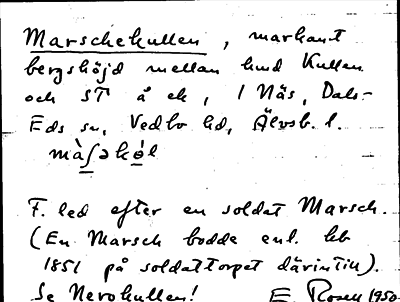 Marschekullen, markant
bergshöjd mellan hmd Kullen
och ST å ek, i Näs, Dals-
Eds sn, Vedbo hd, Älvsb. l.
màʃəkól
F. led efter en soldat Marsch.
(En Marsch bodde enl. hb
1851 på soldattorpet därintill).
Se Nerokullen! E. Rosell 1950